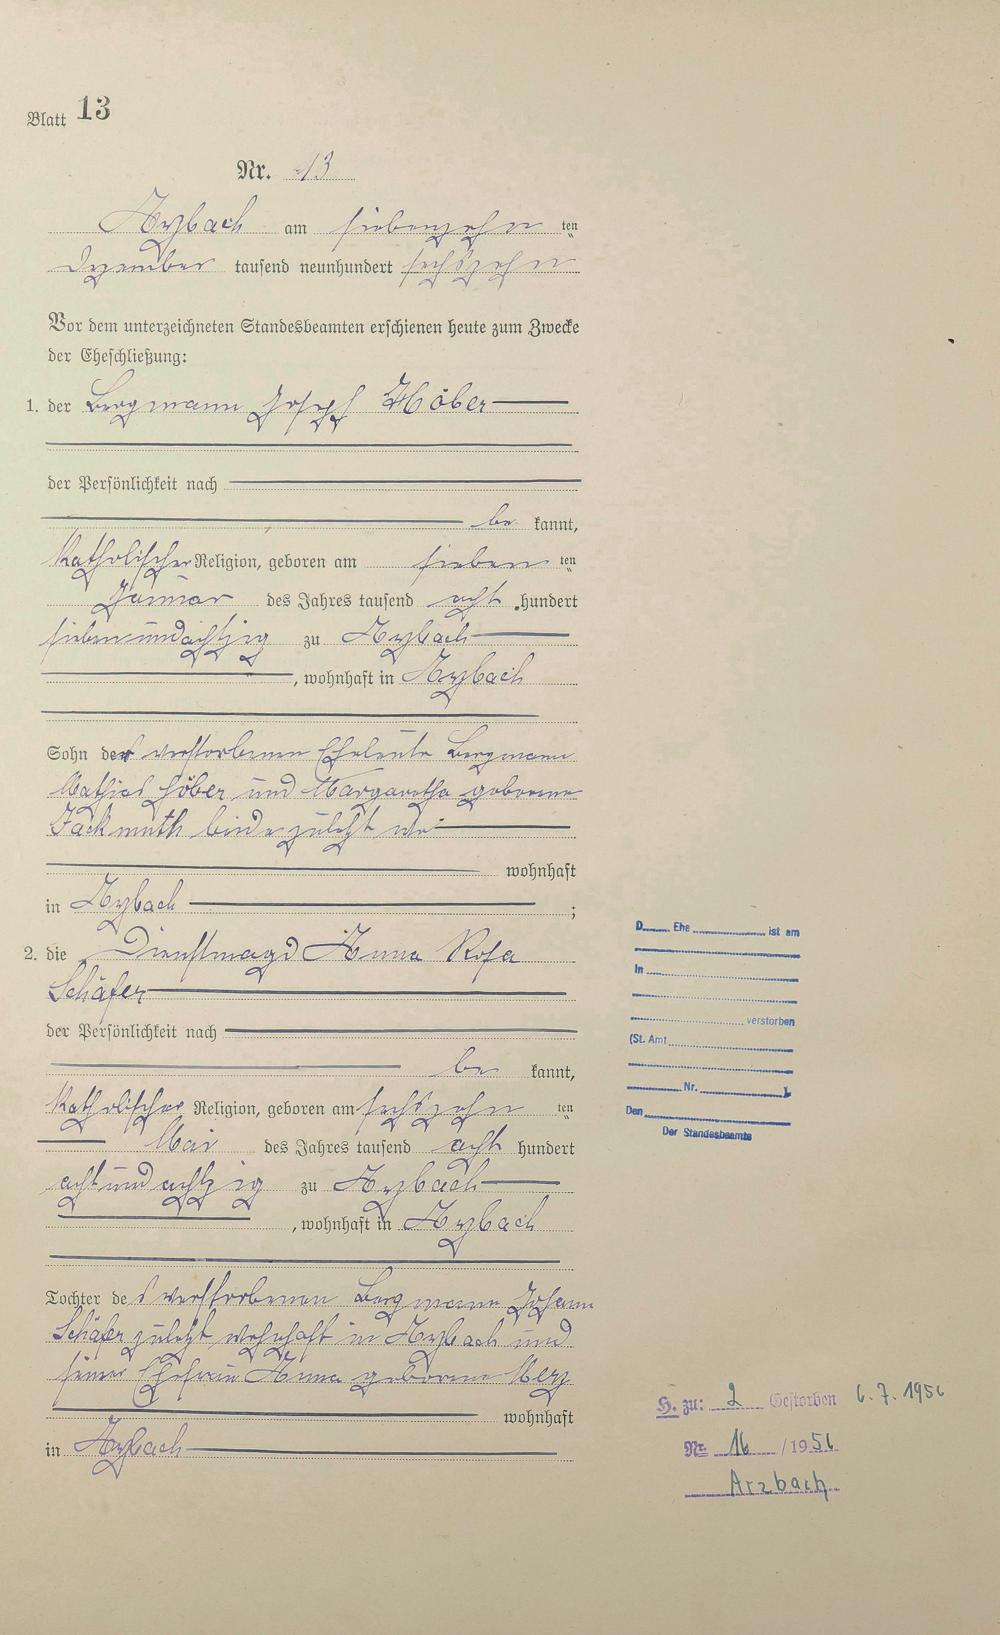 Blatt 13
Nr. 13
Arzbach am siebenzehn ten
Dezember tausend neunhundert sechszehn
Vor dem unterzeichneten Standesbeamten erschienen heute zum Zwecke
der Eheschließung:
1. der Bergmann Joseph Höber
der Persönlichkeit nach
be kannt,
katholischer Religion, geboren am sieben ten
Januar des Jahres tausend acht hundert
siebenundachtzig zu Arzbach
, wohnhaft in Arzbach
Sohn der verstorbenen Eheleute Bergmann
Mathias Höber und Margaretha geborene
Jackmuth beide zuletzt
wohnhaft
in Arzbach ;
2. die Dienstmagd Anna Rosa
Schäfer
der Persönlichkeit nach
be kannt,
katholischer Religion, geboren am sechszehn ten
Mai des Jahres tausend acht hundert
acht und achtzig zu Arzbach
, wohnhaft in Arzbach
Tochter des verstorbenen Bergmann Johann
Schäfer zuletzt wohnhaft in Arzbach und
seiner Ehefrau Anna geborene Merz
wohnhaft
in Arzbach
D Ehe ist am
In
verstorben
(St. Amt
Nr.
Den
Der Standesbeamte
H. zu: 2 Gestorben 6.7.1956
Nr. 16 /1956
Arzbach